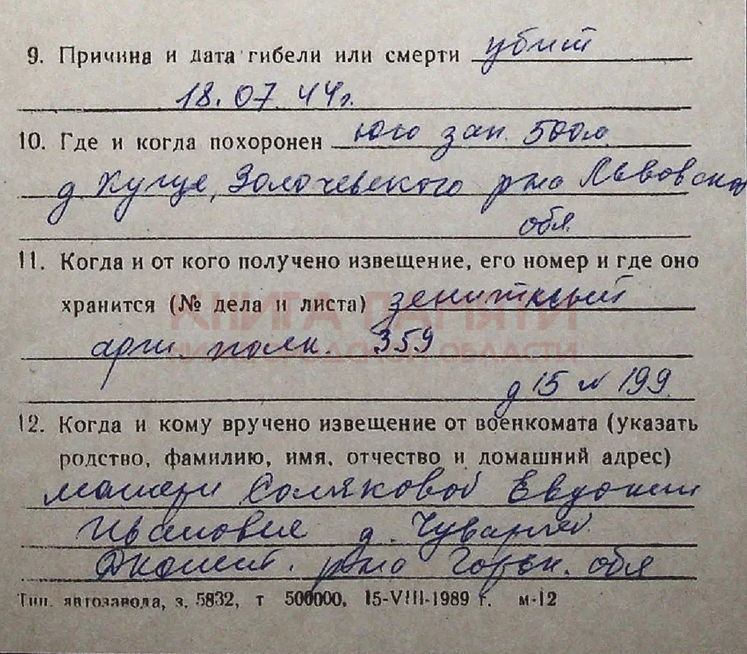 9. Причина и дата гибели или смерти убит
18.07.44г.
10. Где и когда похоронен юго зап. 500м.
д. Хугце, Золочевского р-на Львовской
обл.
11. Когда и от кого получено извещение, его номер и где оно
хранится (№ дела и листа) зенитный
арт. полк. 359
д 15 л 199
12. Когда и кому вручено извещение от военкомата (указать
родство, фамилию, имя, отчество и домашний адрес)
матери Соляковой Евдокии
Ивановне д.
р-на Горьк. обл
Тип. автозавода, з. 5832, т 500000, 15-VIII-1989 г. м-12
КНИГА ПАМЯТИ
НИЖЕГОРОДСКОЙ ОБЛАСТИ